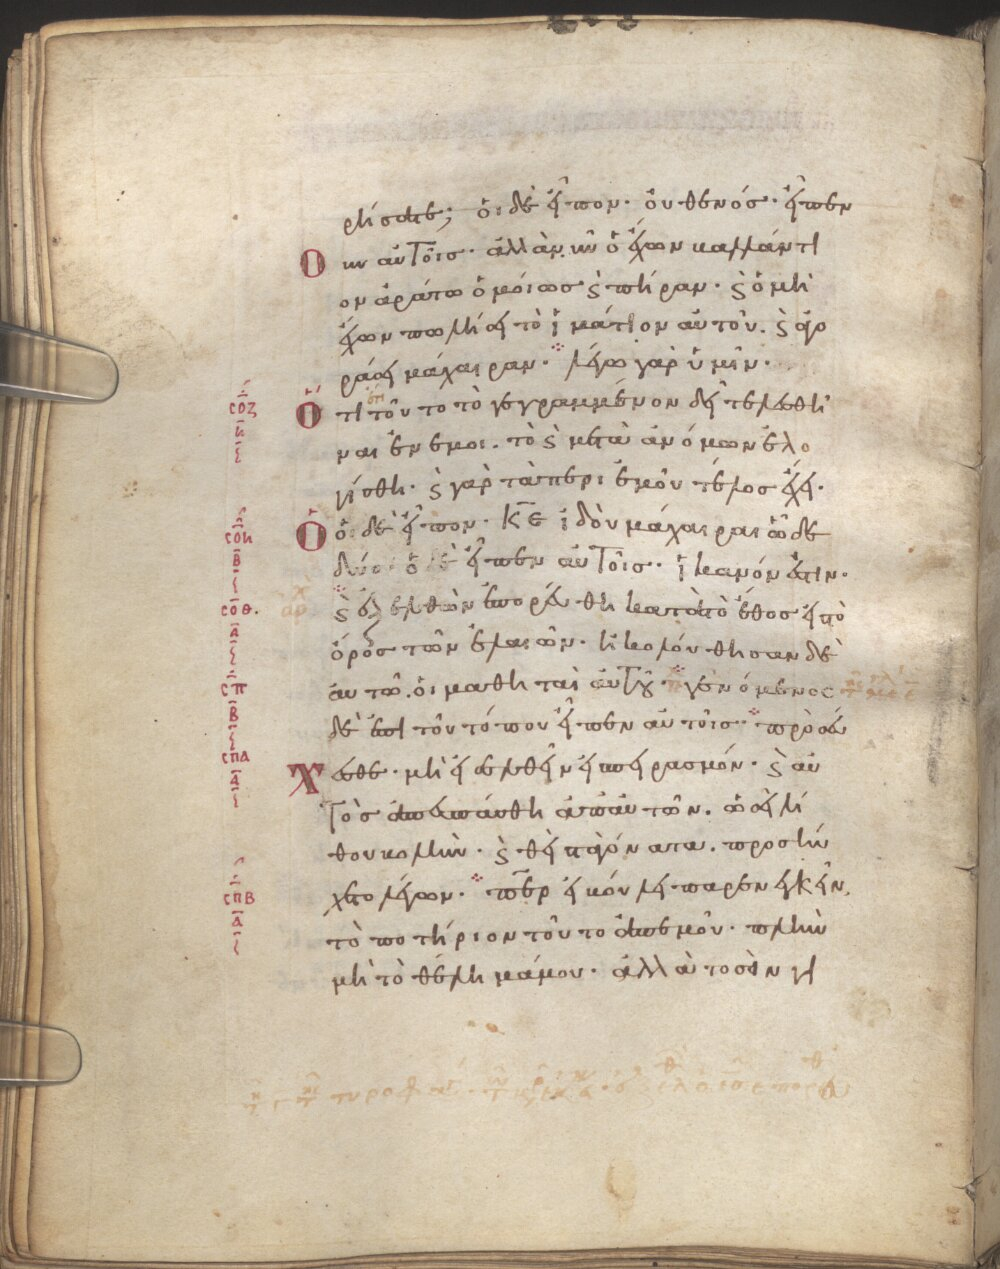 ρήσατε; ὁι δὲ εἶπον· ὀυθενός· εἶπεν
Ουν αὐτοῖς· ἀλλὰ νῦν ὁ ἔχων βαλλάντι
ον ἀράτω ὁμοίως ϗ πήραν· ϗ ὁ μὴ
ἔχων πωλήσει τὸ ἱμάτιον αὐτοῦ. ϗ ἀγο
ράσει μάχαιραν· λέγω γὰρ ὑμῖν·
σοζ
η
Ὅτι τοῦτο τὸ γεγραμμένον δεῖ τελεσθῆ
ναι ἐν ἐμοι. τὸ ϗ μετὰ ἀνόμων ἐλο
γίσθη· ϗ γὰρ τὰ περι ἐμοῦ τέλος ἔχει·
σοη
β
Ὁ ὁι δὲ εἶπον· κ̅ε̅ ἰδοὺ μάχαιραι ὧδε
δύο· ὁ δὲ εἶπεν αὐτοῖς· ἱκανόν ἐστιν·
σοθ
α
ϗ ἐξελθὼν ἐπορεύθη κατὰ τὸ ἔθος εἰς τὸ
ὄρος τῶν ἐλαιῶν· ἠκολούθησαν δὲ
σπ
β
ἀυτῶ. ὁι μαθηταὶ ἀυτοῦ· γενόμενος
δὲ ἐπὶ τοῦ τόπου εἶπεν αὐτοῖς· προσεύ
σπα
α
Χεσθε· μὴ εἰσελθεῖν εἰς πειρασμόν· ϗ αὐ
τὸς ἀπεσπάσθη ἀπ' αὐτῶν. ὡσεὶ λί
θου βολὴν· ϗ θεὶς τὰ γόνατα. προσηύ
σπβ
α
χετο λέγων· π̅ε̅ρ εἰ βούλει παρενεγκεῖν.
τὸ ποτήριον τοῦτο ἀπ' ἐμοῦ· πλὴν
μὴ τὸ θέλημά μου· ἀλλὰ τὸ σὸν γι